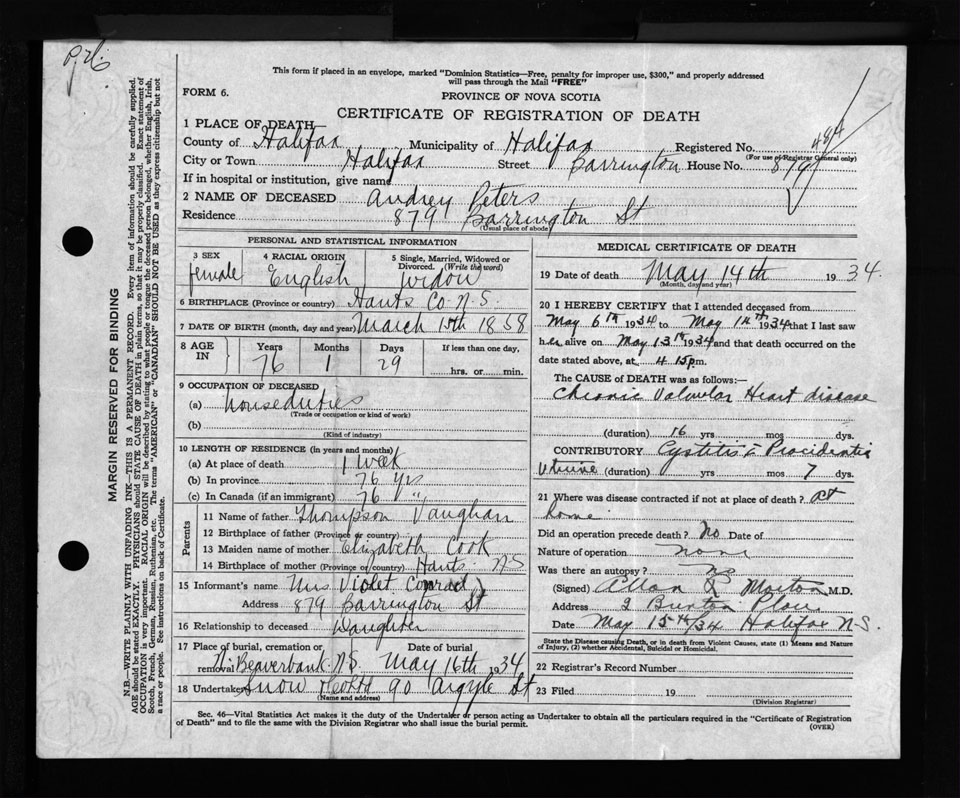 P.26.
This form if placed in an envelope, marked "Dominion Statistics—Free, penalty for improper use, $300," and properly addressed
will pass through the Mail "FREE"
FORM 6.
PROVINCE OF NOVA SCOTIA
CERTIFICATE OF REGISTRATION OF DEATH
1 PLACE OF DEATH—
County of Halifax Municipality of Halifax Registered No. 484
(For use of Registrar General only)
City or Town Halifax Street Barrington House No. 879
If in hospital or institution, give name
2 NAME OF DECEASED Audrey Peters
Residence 879 Barrington St
(Usual place of abode)
PERSONAL AND STATISTICAL INFORMATION
3 SEX female
4 RACIAL ORIGIN English
5 Single, Married, Widowed or Divorced. (Write the word) widow
6 BIRTHPLACE (Province or country) Hants Co. N.S.
7 DATE OF BIRTH (month, day and year) March 15th 1858
8 AGE IN Years 76 Months 1 Days 29 If less than one day, hrs. or min.
9 OCCUPATION OF DECEASED
(a) house duties
(Trade or occupation or kind of work)
(b)
(Kind of industry)
10 LENGTH OF RESIDENCE (in years and months)
(a) At place of death 1 week
(b) In province 76 yrs
(c) In Canada (if an immigrant) 76 "
Parents
11 Name of father Thompson Vaughan
12 Birthplace of father (Province or country)
13 Maiden name of mother Elizabeth Cook
14 Birthplace of mother (Province or country) Hants N.S
15 Informant's name Mrs Violet Conrad
Address 879 Barrington St
16 Relationship to deceased Daughter
17 Place of burial, cremation or removal Beaverbank N.S. Date of burial May 16th 1934
18 Undertaker Snow 90 Argyle St
(Name and address)
MEDICAL CERTIFICATE OF DEATH
19 Date of death May 14th 1934.
(Month, day and year)
20 I HEREBY CERTIFY that I attended deceased from
May 6th 1934 to May 14th 1934 that I last saw
her alive on May 13th 1934 and that death occurred on the
date stated above, at 4.15 p.m.
The CAUSE OF DEATH was as follows:—
Chronic Valvular Heart disease
(duration) 16 yrs mos dys.
CONTRIBUTORY Cystitis & Procidentia
Uterine (duration) yrs mos 7 dys.
21 Where was disease contracted if not at place of death? at
home
Did an operation precede death? No Date of
Nature of operation none
Was there an autopsy? no
(Signed) Allan R Morton M.D.
Address 2 Burton Place
Date May 15th/34 Halifax N.S.
State the Disease causing Death, or in death from Violent Causes, state (1) Means and Nature
of Injury, (2) whether Accidental, Suicidal or Homicidal.
22 Registrar's Record Number
23 Filed 19
(Division Registrar)
Sec. 46—Vital Statistics Act makes it the duty of the Undertaker or person acting as Undertaker to obtain all the particulars required in the "Certificate of Registration
of Death" and to file the same with the Division Registrar who shall issue the burial permit.
(OVER)
MARGIN RESERVED FOR BINDING
N.B.—WRITE PLAINLY WITH UNFADING INK—THIS IS A PERMANENT RECORD. Every item of information should be carefully supplied.
AGE should be stated EXACTLY. PHYSICIANS should STATE CAUSE OF DEATH in plain terms, so that it may be properly classified. Exact statement of
OCCUPATION is very important. RACIAL ORIGIN will be described by stating to what people or tongue the deceased person belonged, whether English, Irish,
Scotch, French, German, Russian, Ruthenian, etc. The terms "AMERICAN" or "CANADIAN" SHOULD NOT BE USED as they express citizenship but not
a race or people. See instructions on back of Certificate.